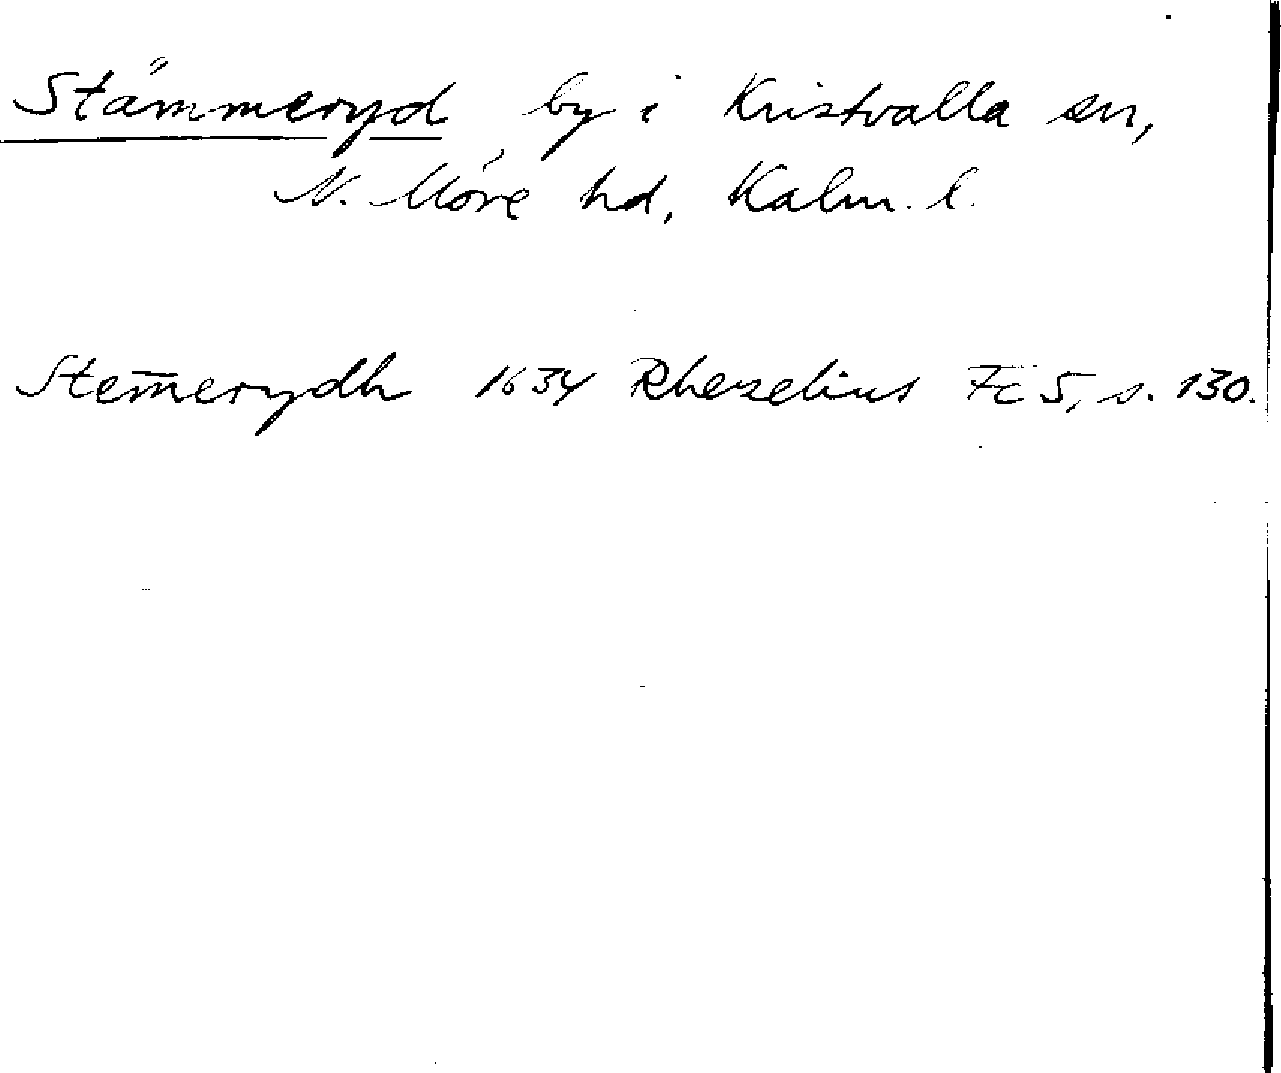 Stämmeryd by i Kristvalla sn,
N. Möre hd, Kalm. l.
Stem̅erydh 1634 Rhezelius Fc 5, s. 130.